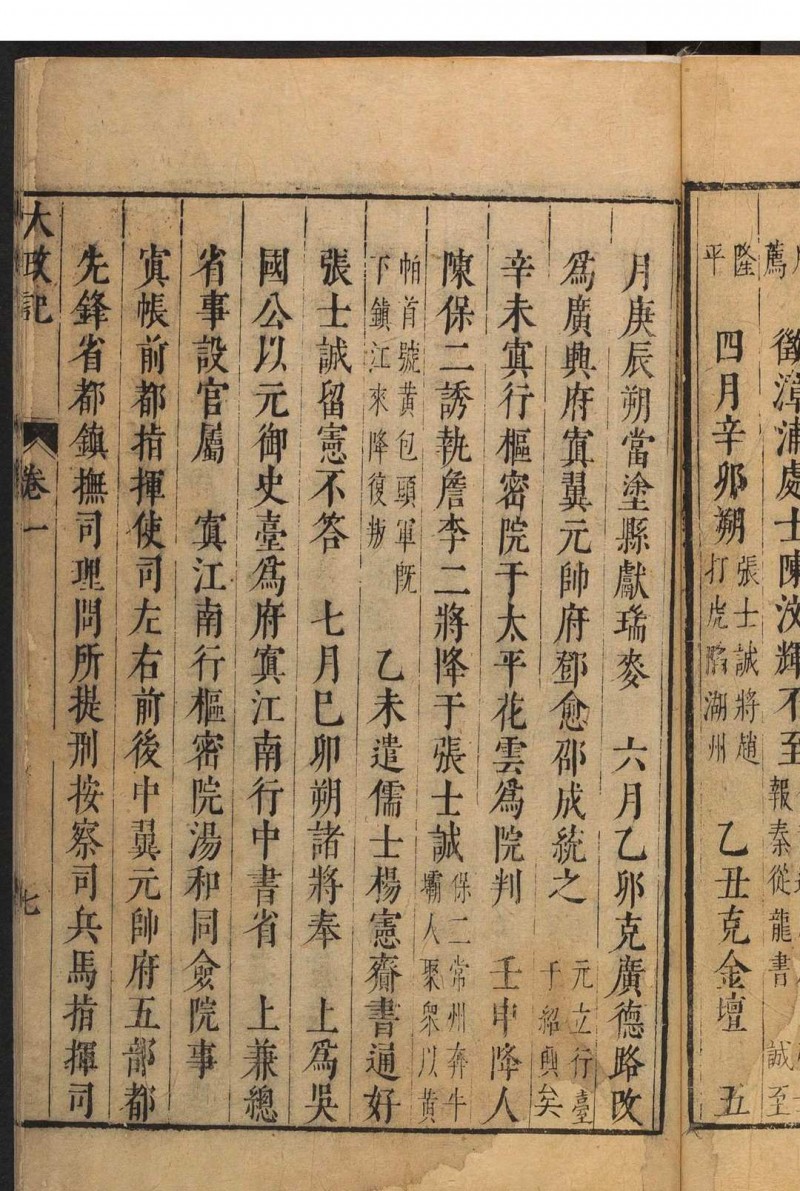 薦 徵漳浦處士陳汝輝不至 報秦從龍書 誠至
隆平 四月辛卯朔 張士誠將趙打虎陷湖州 乙丑克金壇 五
月庚辰朔當塗縣獻瑞麥 六月乙卯克廣德路改
爲廣興府寘翼元帥府鄧愈邵成統之 元立行臺于紹興矣
辛未寘行樞密院于太平花雲爲院判 壬申降人
陳保二誘執詹李二將降于張士誠 保二常州奔牛壩人聚衆以黄
帕首號黄包頭軍旣下鎮江來降復叛 乙未遣儒士楊憲齎書通好
張士誠留憲不答 七月巳卯朔諸將奉 上爲吳
國公以元御史臺爲府寘江南行中書省 上兼總
省事設官屬 寘江南行樞密院湯和同僉院事
寘帳前都指揮使司左右前後中翼元帥府五部都
先鋒省都鎮撫司理問所提刑按察司兵馬指揮司
大政記 卷一 七